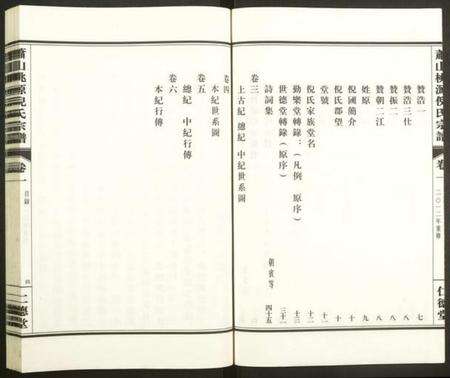 蕭山桃源倪氏宗譜
卷一
二〇一二年重修
仁德堂
贊浩一 七
贊浩三仕 八
贊振二 八
贊朝二江 八
姓原 九
倪國簡介 十
倪氏郡望 十
堂號 十
倪氏家族堂名 十二
勤樂堂轉錄：（凡例 原序） 十二
世德堂轉錄（原序） 三十一
詩詞集 四十五
卷三
上古紀 總紀 中紀世系圖
卷四
本紀世系圖
卷五
總紀 中紀行傳
卷六
本紀行傳
蕭山桃源倪氏宗譜
卷一
目錄
四
仁德堂